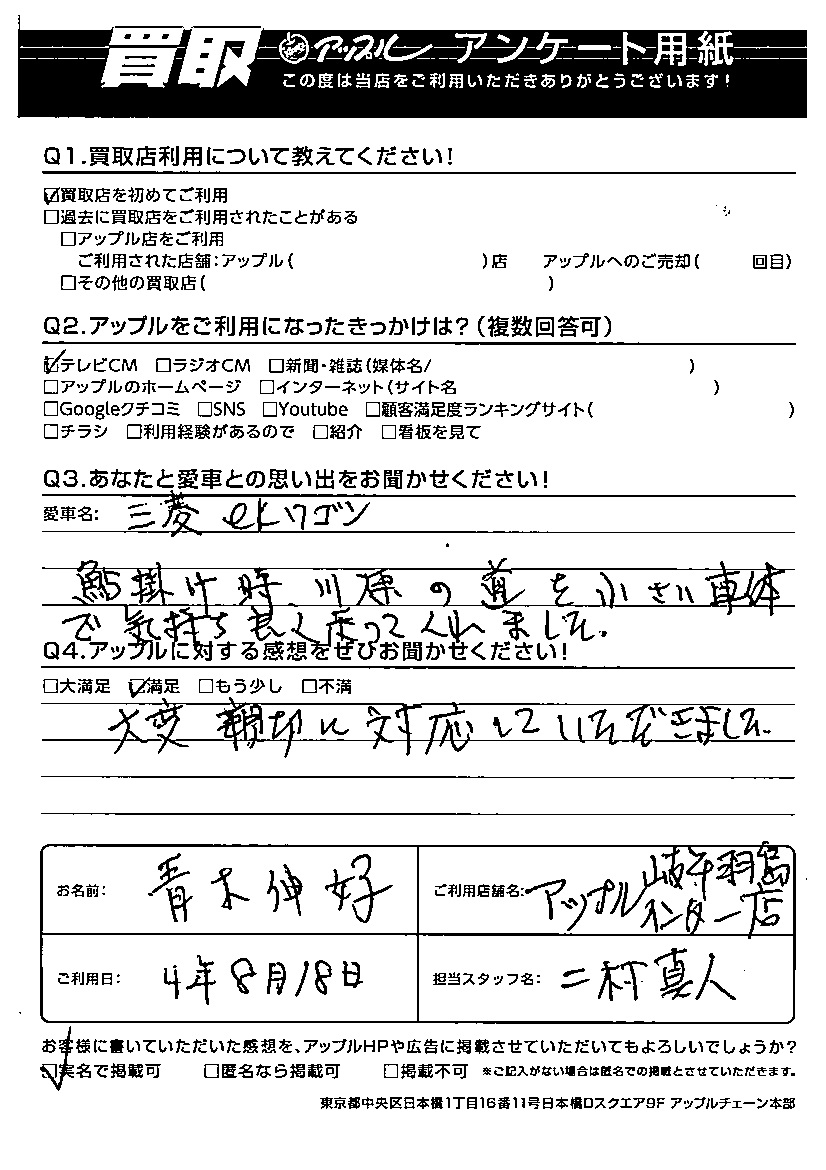 買取 アップル アンケート用紙
この度は当店をご利用いただきありがとうございます！
Q1.買取店利用について教えてください！
☑買取店を初めてご利用
□過去に買取店をご利用されたことがある
□アップル店をご利用
ご利用された店舗：アップル（ ）店 アップルへのご売却（ 回目）
□その他の買取店（ ）
Q2.アップルをご利用になったきっかけは？（複数回答可）
☑テレビCM □ラジオCM □新聞・雑誌（媒体名/ ）
□アップルのホームページ □インターネット（サイト名 ）
□Googleクチコミ □SNS □Youtube □顧客満足度ランキングサイト（ ）
□チラシ □利用経験があるので □紹介 □看板を見て
Q3.あなたと愛車との思い出をお聞かせください！
愛車名： 三菱 ekワゴン
鮎掛け時、川原の道を小さい車体
で気持ち良く走ってくれました。
Q4.アップルに対する感想をぜひお聞かせください！
□大満足 ☑満足 □もう少し □不満
大変親切に対応していただきました。
お名前： 青木伸好
ご利用店舗名： アップル岐阜羽島インター店
ご利用日： 4年8月18日
担当スタッフ名： 二村真人
お客様に書いていただいた感想を、アップルHPや広告に掲載させていただいてもよろしいでしょうか？
☑実名で掲載可 □匿名なら掲載可 □掲載不可 ※ご記入がない場合は匿名での掲載とさせていただきます。
東京都中央区日本橋1丁目16番11号日本橋Dスクエア9F アップルチェーン本部